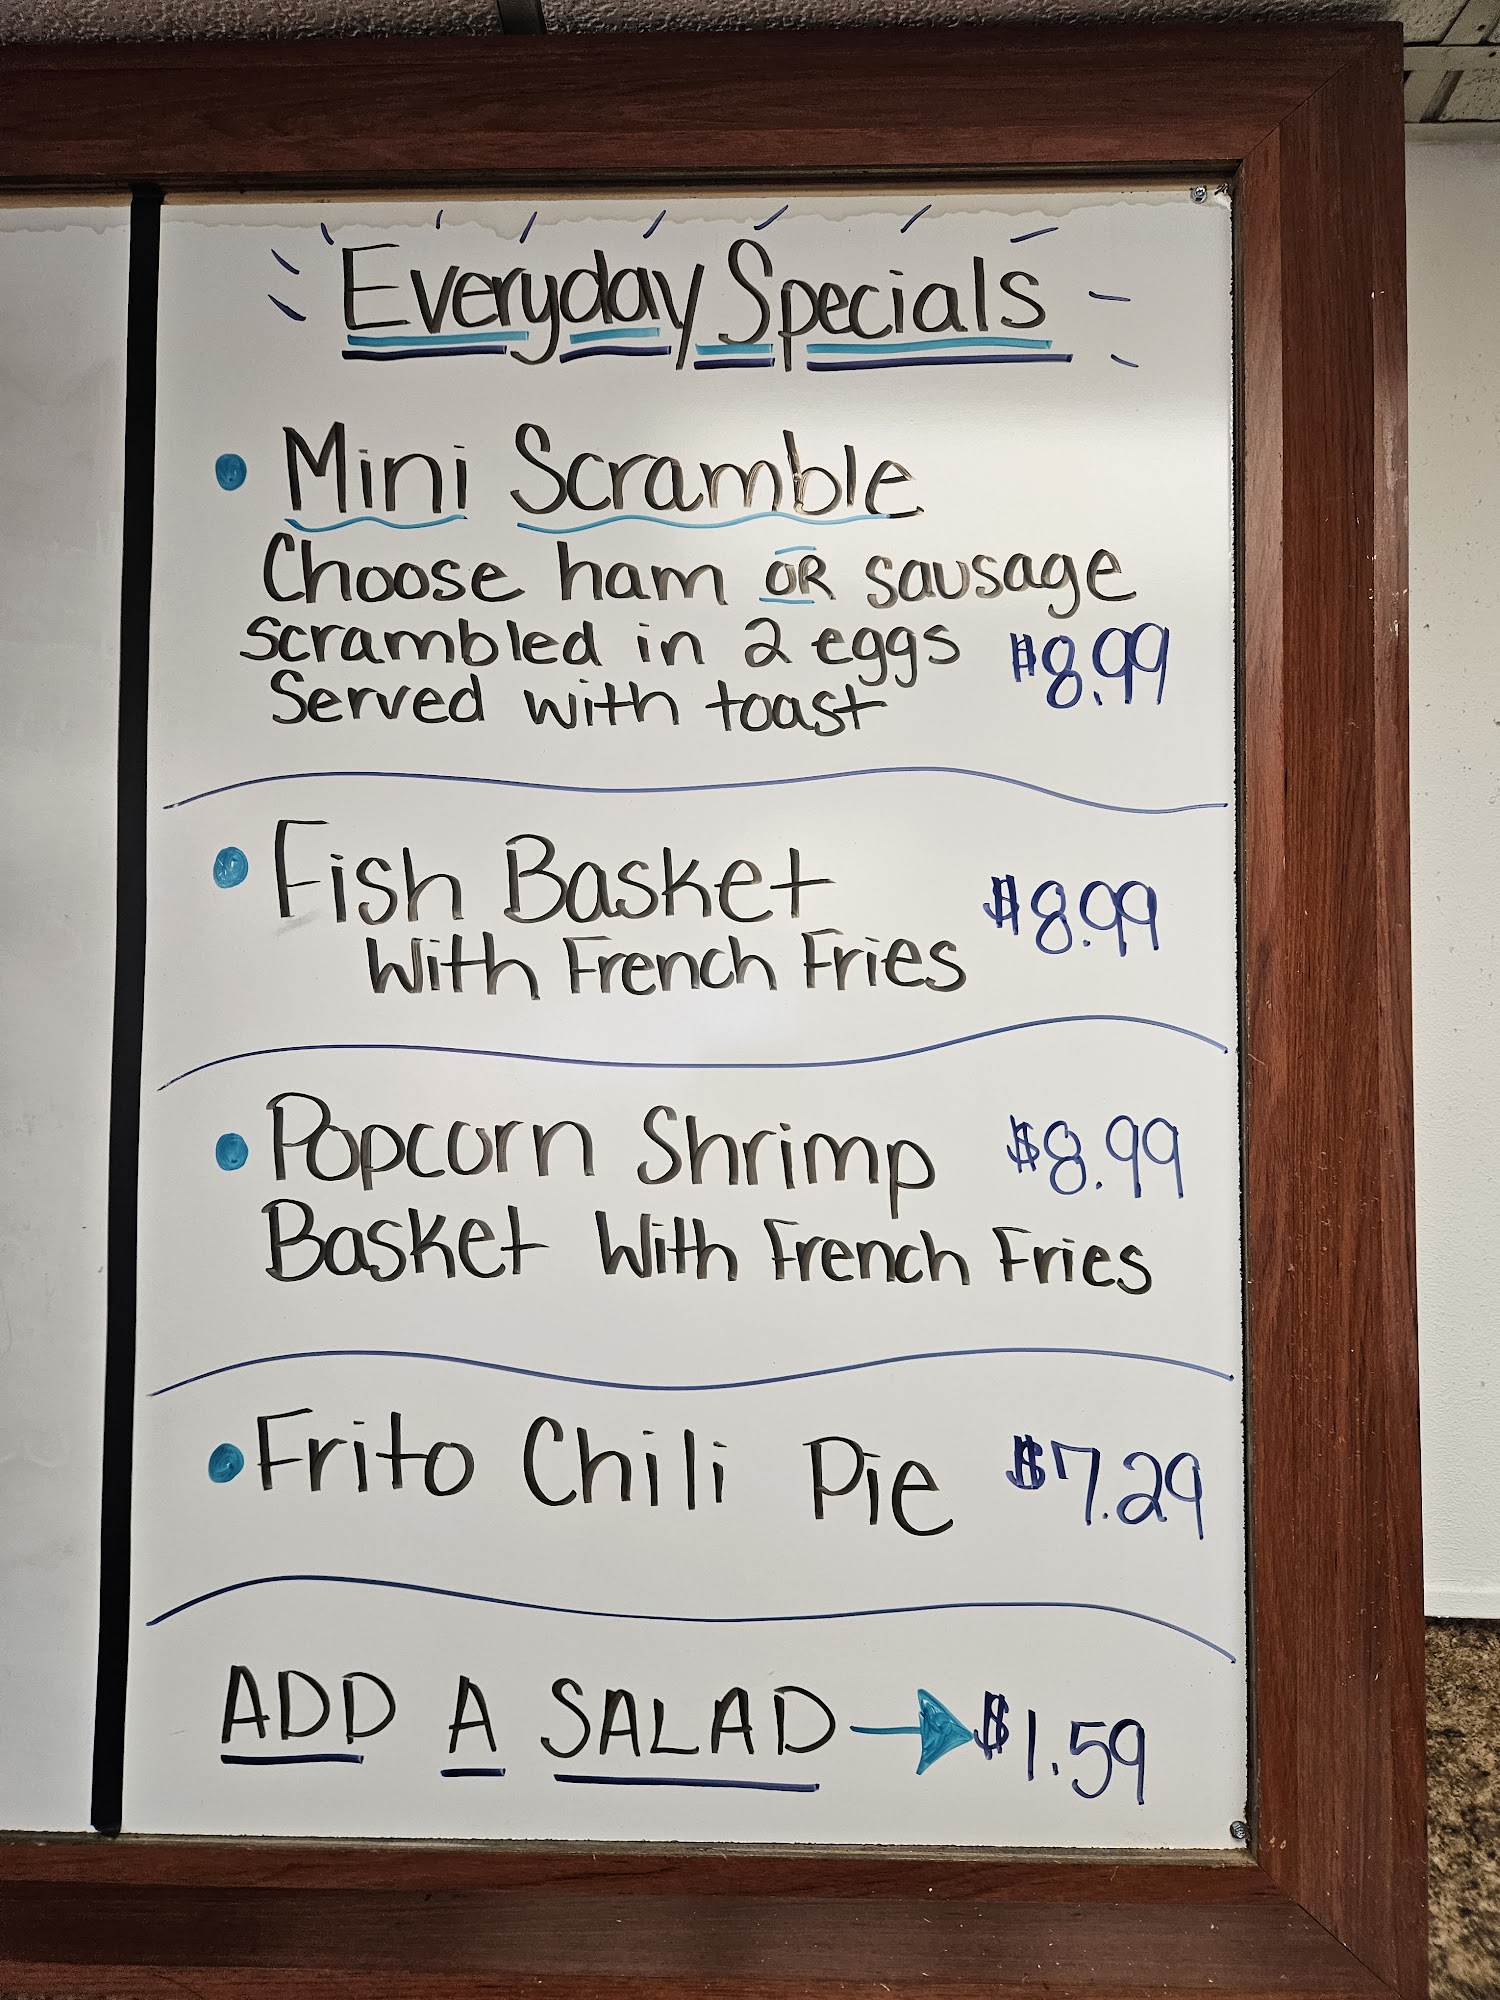 Everyday Specials
Mini Scramble
Choose ham OR sausage
scrambled in 2 eggs $8.99
Served with toast
Fish Basket $8.99
With French Fries
Popcorn Shrimp $8.99
Basket With French Fries
Frito Chili Pie $7.29
ADD A SALAD → $1.59